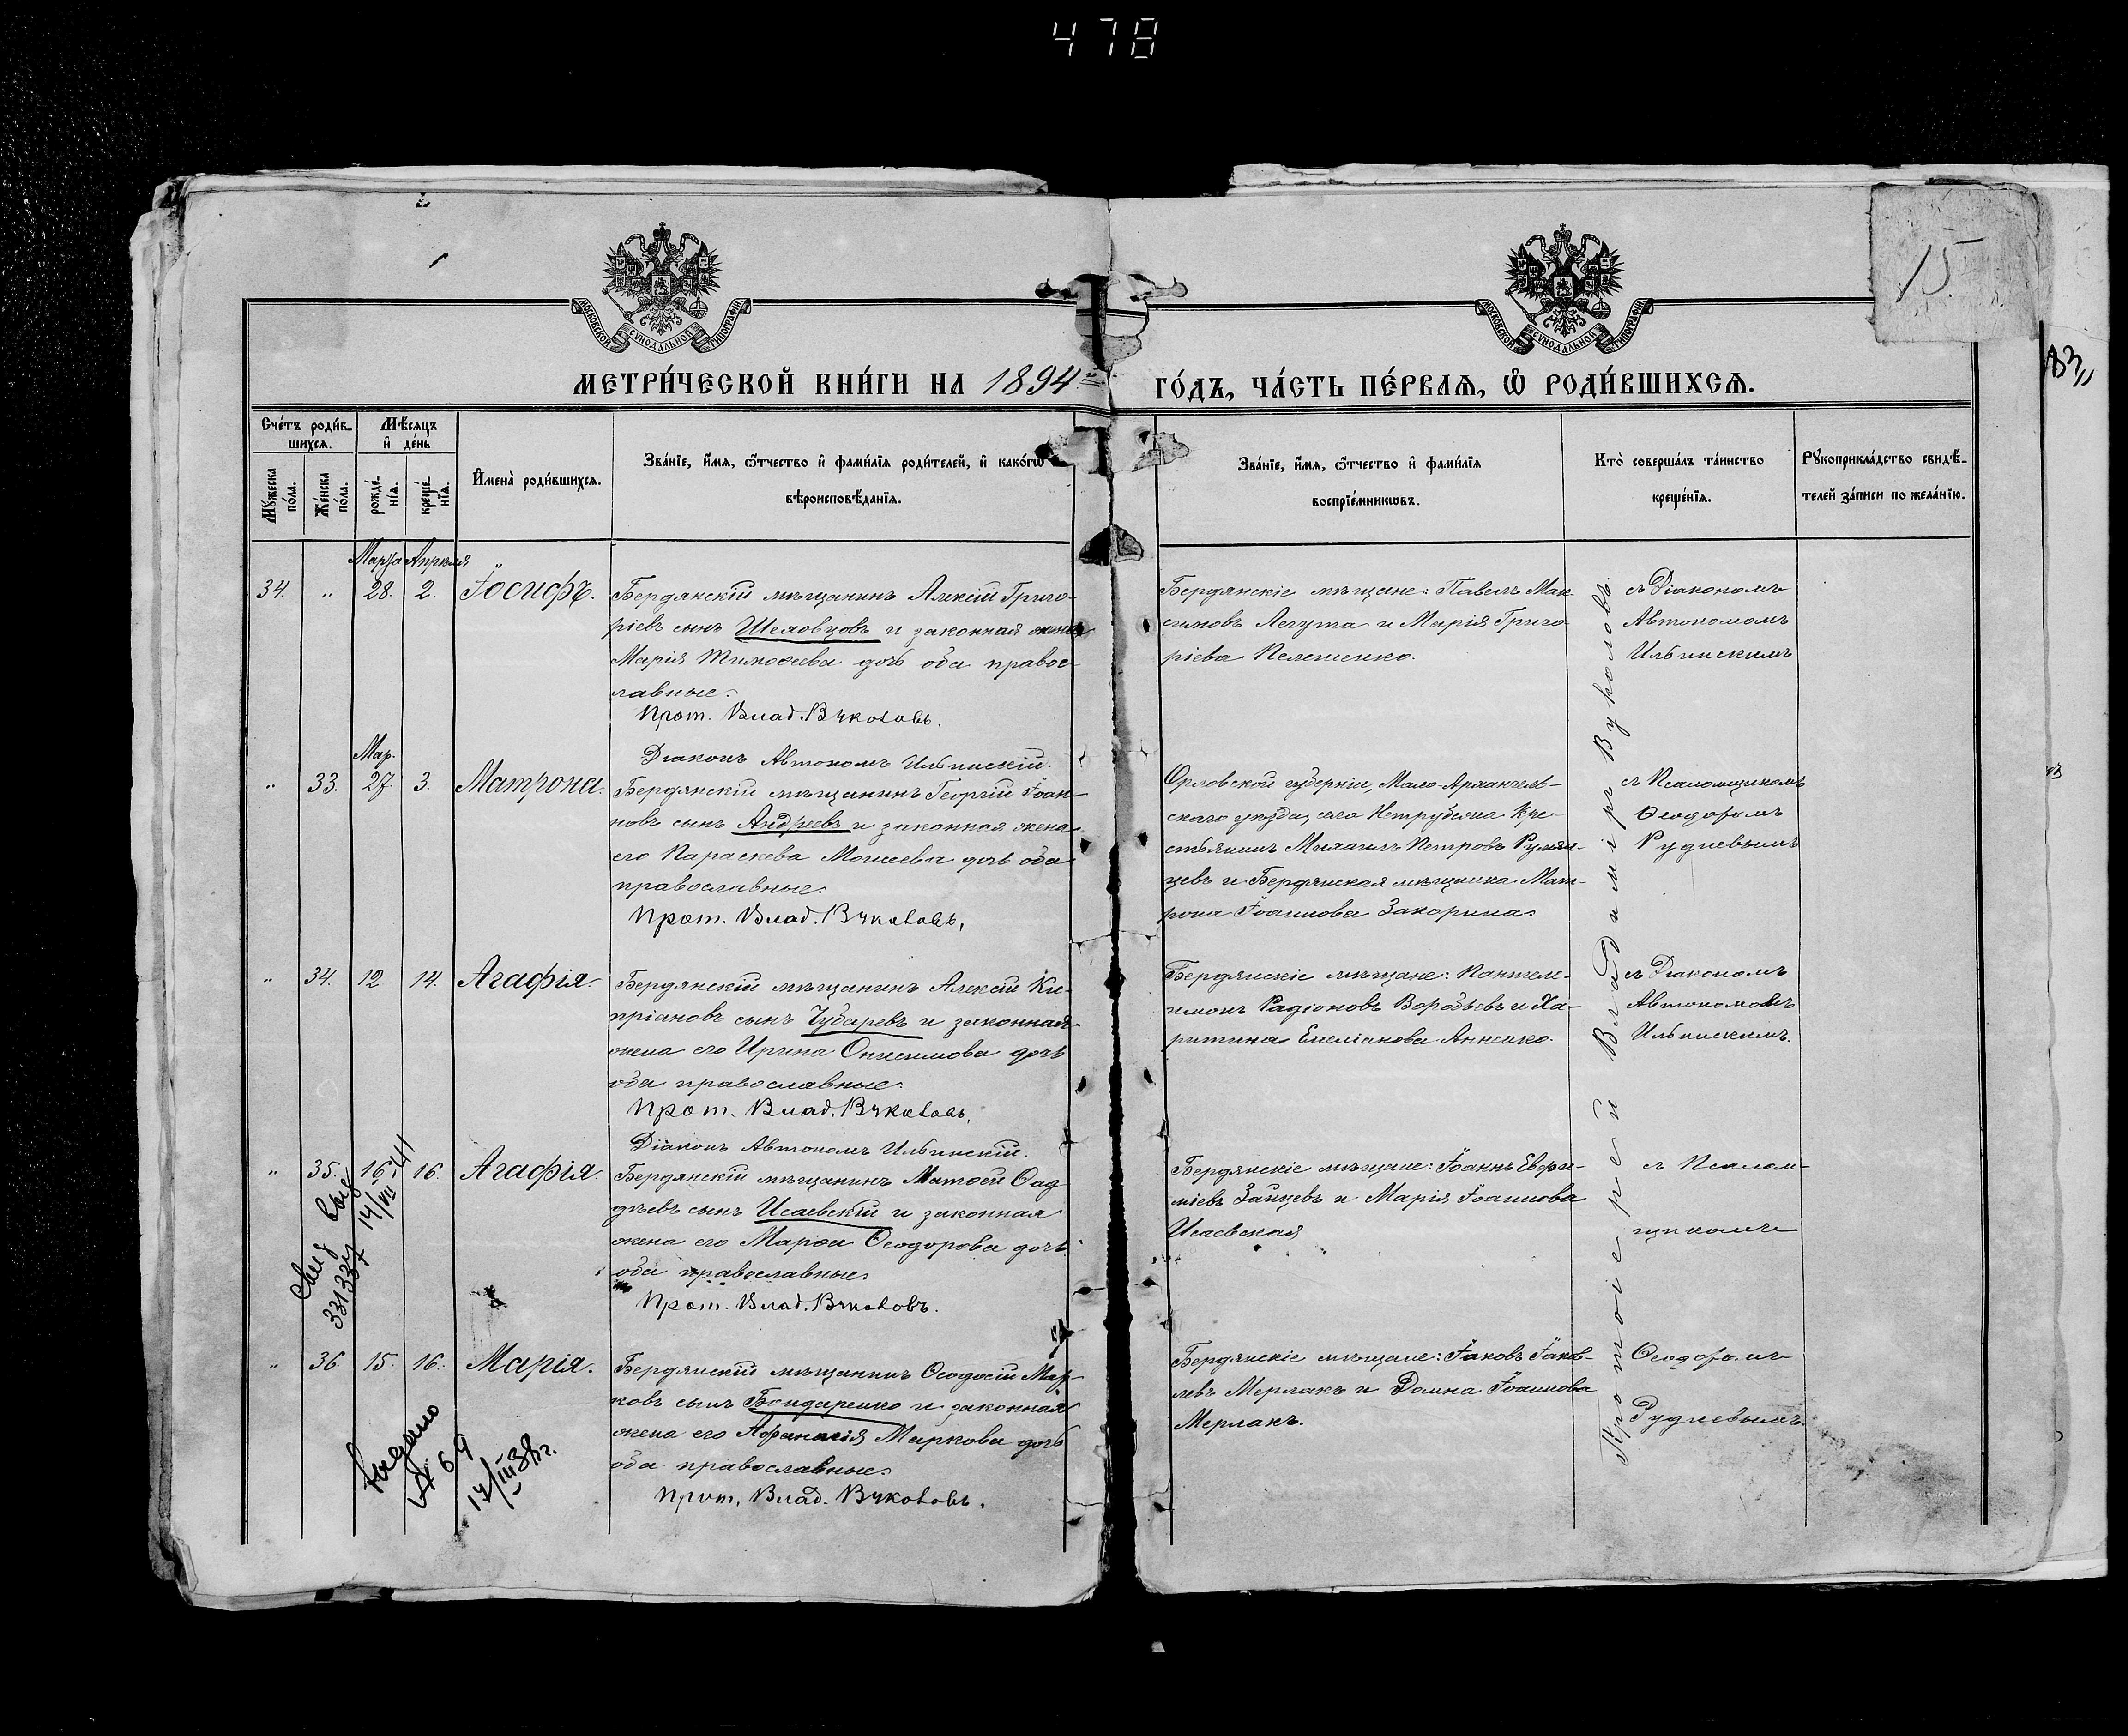 478
15
83
МОСКОВСКОЙ СУНОДАЛЬНОЙ ТИПОГРАФІИ
МОСКОВСКОЙ СУНОДАЛЬНОЙ ТИПОГРАФІИ
МЕТРИ́ЧЕСКОЙ КНИ́ГИ НА 1894й ГО́ДЪ, ЧА́СТЬ ПЕ́РВАѦ, Ѡ҆ РОДИ́ВШИХСѦ.
Сче́тъ роди́в-
шихсѧ.
Мѣ́сѧцъ
и҆ де́нь
Мꙋ́жеска по́ла.
Же́нска по́ла.
рожде́-
нїѧ.
креще́-
нїѧ.
И҆мена̀ роди́вшихсѧ.
Зва́нїе, и҆́мѧ, ѻ҆́тчество и҆ фами́лїѧ роди́телей, и҆ како́гѡ
вѣроисповѣ́данїѧ.
Зва́нїе, и҆́мѧ, ѻ҆́тчество и҆ фами́лїѧ
воспрїе́мникѡвъ.
Кто̀ соверша́лъ та́инство
креще́нїѧ.
Рꙋкоприкла́дство свидѣ́-
телей за́писи по жела́нїю.
Марта Апрѣля
34. " 28. 2. Іосифъ.
Бердянскій мѣщанинъ Алексій Григо-
ріевъ сынъ Шеловцовъ и законная жена
Марія Тимоѳеева дочь оба правос-
лавные.
Прот. Влад. Вуколовъ.
Діаконъ Автономъ Ильинскій.
Бердянскіе мѣщане: Павелъ Мак-
симовъ Легута и Марія Григо-
ріева Пелешенко.
съ Діакономъ
Автономомъ
Ильинскимъ
Мар.
" 33. 27. 3. Матрона.
Бердянскій мѣщанинъ Георгій Іоан-
новъ сынъ Андреевъ и законная жена
его Параскева Моисеева дочь оба
православные.
Прот. Влад. Вуколовъ.
Орловской губерніи, Мало-Архангель-
скаго уѣзда, села Нетрубежа Кре-
стьянинъ Михаилъ Петровъ Румян-
цевъ и Бердянская мѣщанка Мат-
рона Іоаннова Захорина.
съ Псаломщикомъ
Ѳеодоромъ
Рудневымъ
" 34. 12 14. Агафія.
Бердянскій мѣщанинъ Алексій Ки-
пріановъ сынъ Чубаревъ и законная
жена его Ирина Онисимова дочь
оба православные.
Прот. Влад. Вуколовъ.
Діаконъ Автономъ Ильинскій.
Бердянскіе мѣщане: Пантеле-
имонъ Радіоновъ Воробьевъ и Ха-
ритина Емеліанова Анненко.
съ Діакономъ
Автономомъ
Ильинскимъ.
" 35. 16. 16. Агафія.
Бердянскій мѣщанинъ Матѳей Ѳад-
дѣевъ сынъ Исаевскій и законная
жена его Марѳа Ѳеодорова дочь
оба православные.
Прот. Влад. Вуколовъ.
Бердянскіе мѣщане: Іоаннъ Евѳи-
міевъ Зайцевъ и Марія Іоаннова
Исаевская
съ Псалом-
щикомъ
" 36. 15. 16. Марія.
Бердянскій мѣщанинъ Ѳеодосій Мар-
ковъ сынъ Бондаренко и законная
жена его Афанасія Маркова дочь
оба православные.
Прот. Влад. Вуколовъ.
Бердянскіе мѣщане: Іаковъ Іаков-
левъ Мерлакъ и Домна Іоаннова
Мерлакъ.
Ѳеодоромъ
Рудневымъ
Протоіерей Владиміръ Вуколовъ
Свид выд
331337 14/VII-41
выдано
№ 69
14/III 38 г.